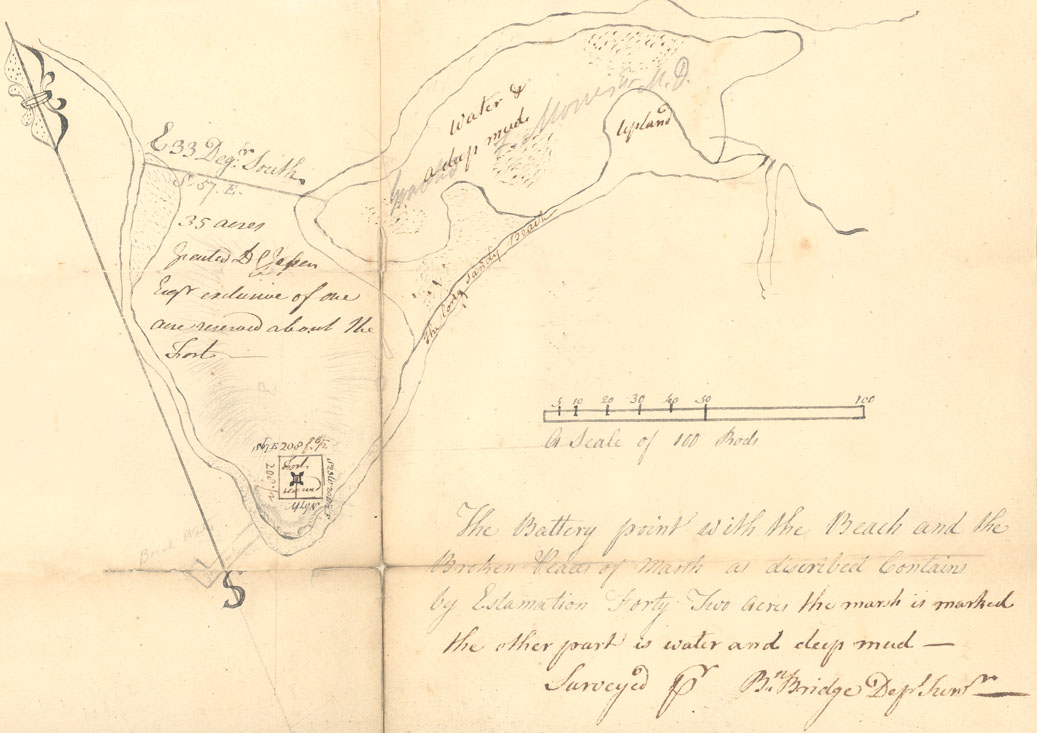 E 33 Degr. South.
S. 57. E.
35 acres
granted D
East exclusive of one
acre reserved about the
Fort
water &
a deep mud
upland
The Long Sandy Beach
5 10 20 30 40 50 100
A Scale of 100 Rods
Fort
S
The Battery point with the Beach and the
Broken Peaces of Marsh as discribed Contains
by Estamation Forty Two acres the marsh is marked
the other part is water and deep mud —
Surveyed pr Bn Bridge Dept. Survr